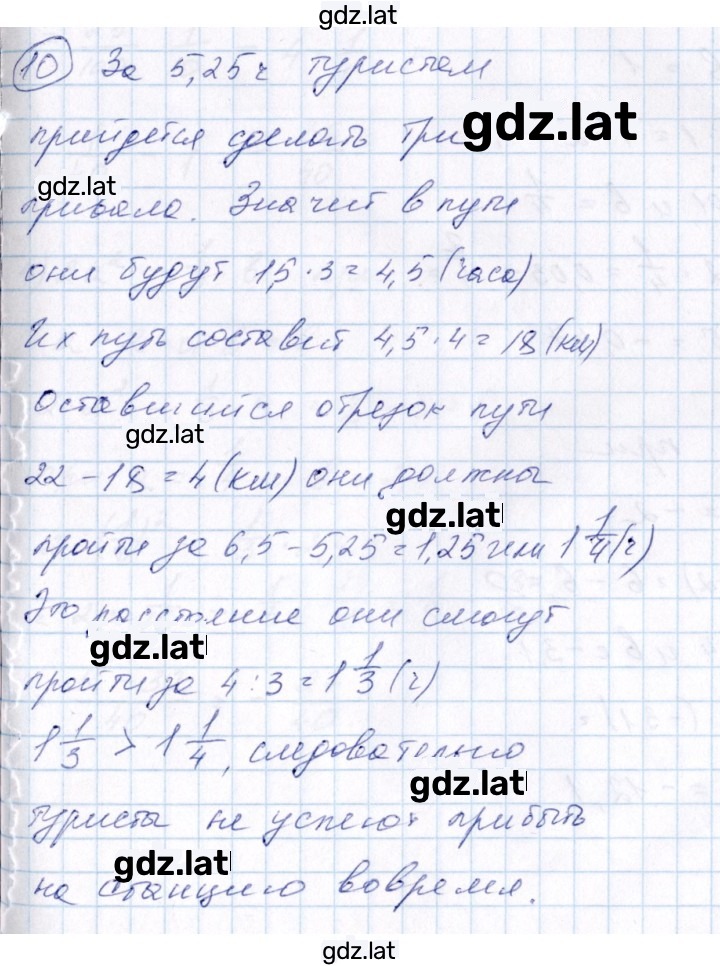 gdz.lat
10 За 5,25 ч туристам
прийдется сделать три
gdz.lat
gdz.lat
привала. Значит в пути
они будут 1,5 · 3 = 4,5 (часа)
Их путь составит 4,5 · 4 = 18 (км)
Оставшийся отрезок пути
gdz.lat
22 - 18 = 4 (км) они должны
gdz.lat
пройти за 6,5 - 5,25 = 1,25 или 1 1/4 (ч)
Это расстояние они смогут
gdz.lat
пройти за 4 : 3 = 1 1/3 (ч)
1 1/3 > 1 1/4, следовательно
gdz.lat
туристы не успеют прибыть
gdz.lat
на станцию вовремя.
gdz.lat